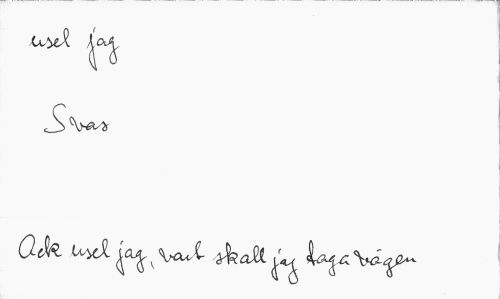 usel jag
Svar
Ack usel jag, vart skall jag taga vägen